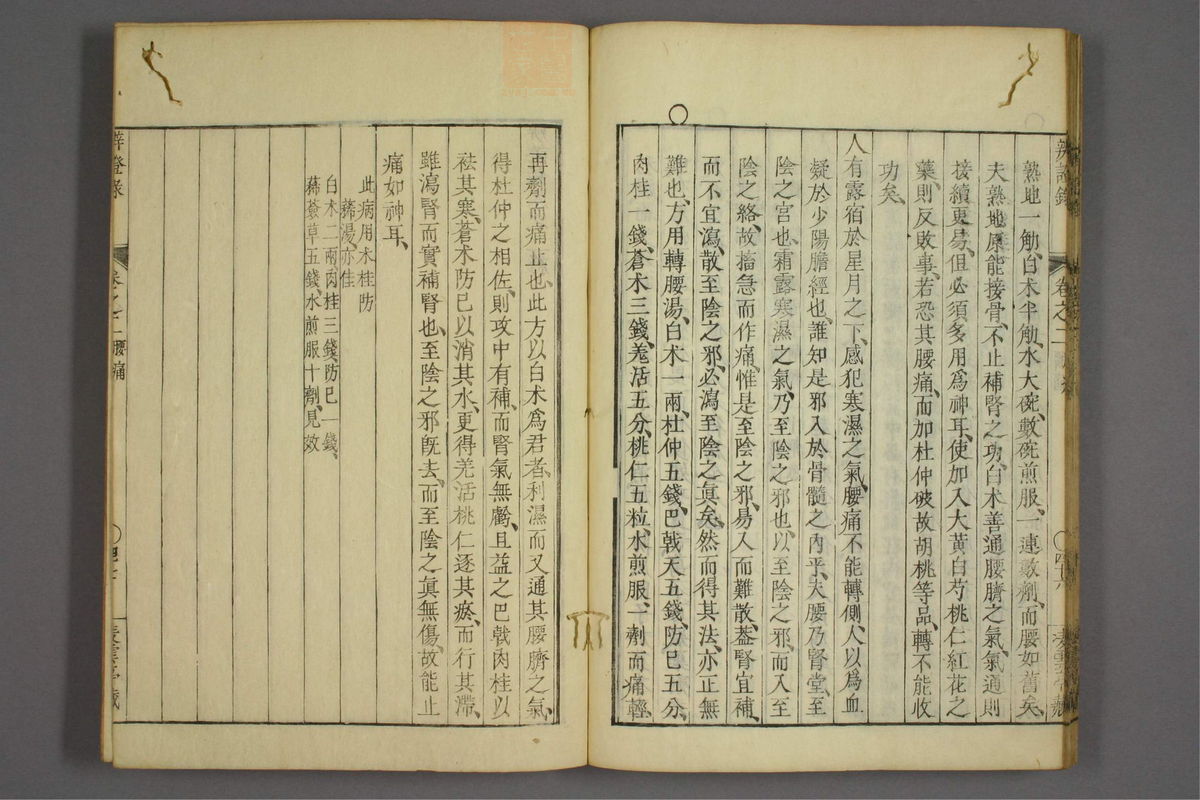 熟地一觔、白朮半觔、水大碗、數碗煎服、一連數劑、而腰如舊矣、
夫熟地原能接骨、不止補腎之功、白朮善通腰臍之氣、氣通則
接續更易、但必須多用爲神耳、使加入大黃白芍桃仁紅花之
藥、則反敗事、若恐其腰痛、而加杜仲破故胡桃等品、轉不能收
功矣、
○
人有露宿於星月之下、感犯寒濕之氣、腰痛不能轉側、人以爲血
凝於少陽膽經也、誰知是邪入於骨髓之內乎、夫腰乃腎堂、至
陰之宮也、霜露寒濕之氣、乃至陰之邪也、以至陰之邪、而入至
陰之絡、故搐急而作痛、惟是至陰之邪、易入而難散、葢腎宜補、
而不宜瀉、散至陰之邪、必瀉至陰之眞矣、然而得其法、亦正無
難也、方用轉腰湯、白朮一兩、杜仲五錢、巴戟天五錢、防己五分、
肉桂一錢、蒼朮三錢、羗活五分、桃仁五粒、水煎服、一劑而痛輕、
再劑而痛止也、此方以白朮爲君者、利濕而又通其腰臍之氣、
得杜仲之相佐、則攻中有補、而腎氣無虧、且益之巴戟肉桂以
祛其寒、蒼朮防己以消其水、更得羌活桃仁逐其瘀、而行其滯、
雖瀉腎而實補腎也、至陰之邪旣去、而至陰之眞無傷、故能止
痛如神耳、
此病用朮桂防
豨湯、亦佳
白朮二兩肉桂三錢、防己一錢、
豨薟草五錢、水煎服十劑、見效
辨證錄
卷之二
卷之二 腰痛